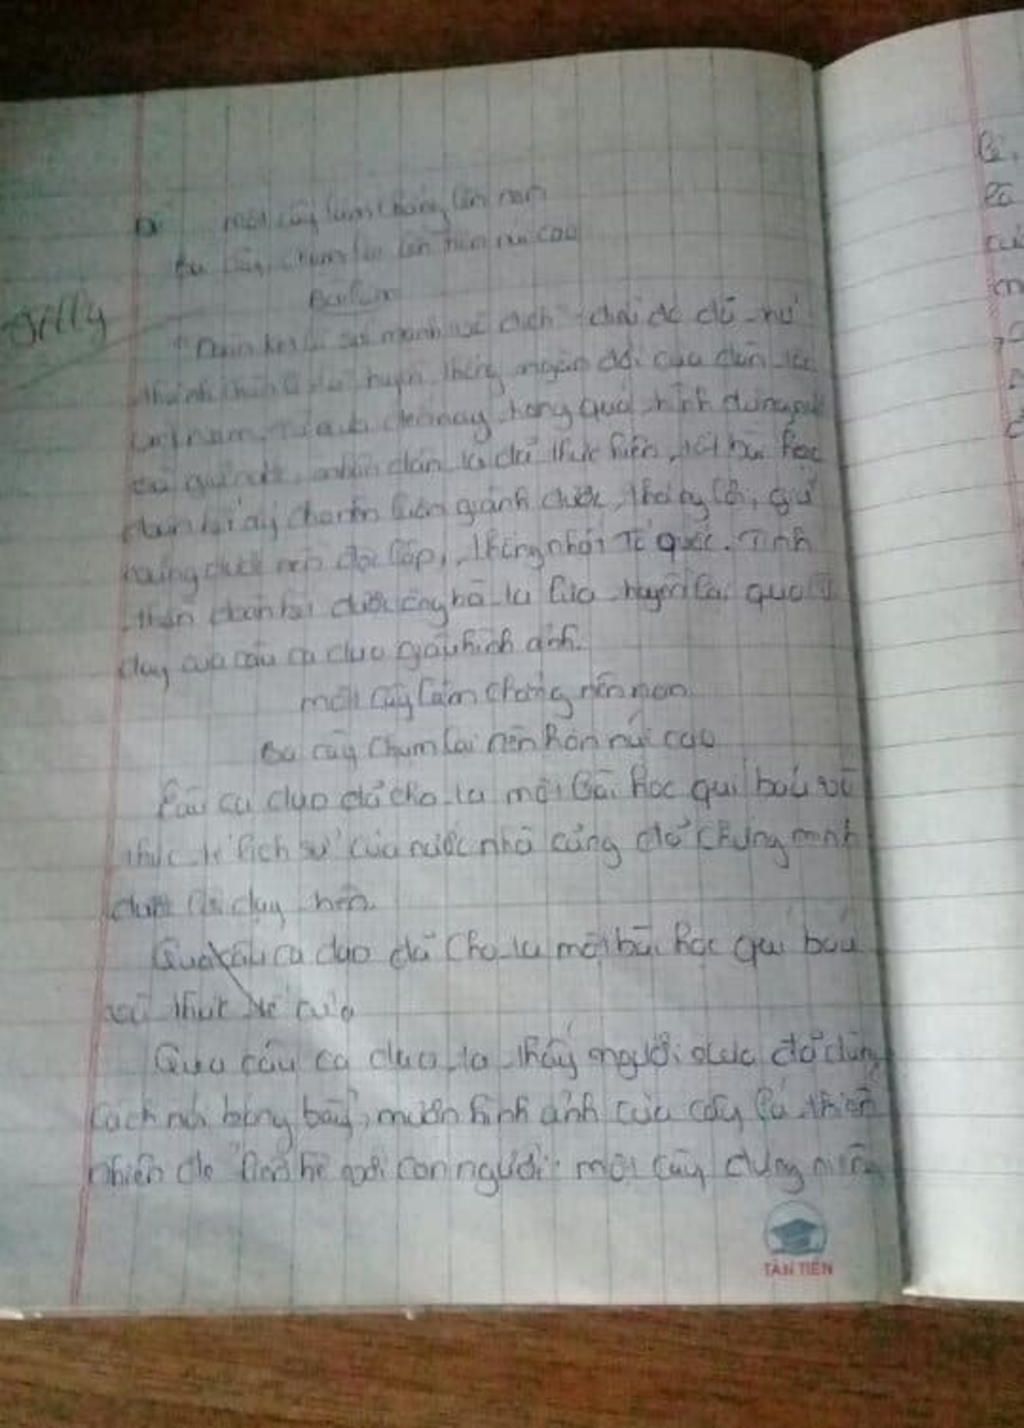 một cây làm chẳng lên non
Ba cây chụm lại lên hòn núi cao
Bài làm
Đoàn kết là sức mạnh vô địch
thành truyền thống ngàn đời của dân tộc
Việt nam. đến nay, trong quá trình dựng nước
và giữ nước, nhân dân ta đã thực hiện tốt bài học
đoàn kết ấy cho nên luôn giành được thắng lợi, giữ
vững được nền độc lập, thống nhất Tổ quốc. Tinh
thần đoàn kết được ông bà ta lưu truyền lại qua
dạy của câu ca dao giàu hình ảnh.
một cây làm chẳng nên non
Ba cây chụm lại nên hòn núi cao
Câu ca dao đã cho ta một bài học quí báu và
thực tế lịch sử của nước nhà cũng đã chứng minh
được lời dạy trên.
Qua câu ca dao đã cho ta một bài học quí báu
và thực tế của
Qua câu ca dao ta thấy người xưa đã dùng
cách nói bóng bẩy, mượn hình ảnh của cây lá thiên
nhiên để liên hệ với con người. một cây đứng riêng
TÂN TIẾN